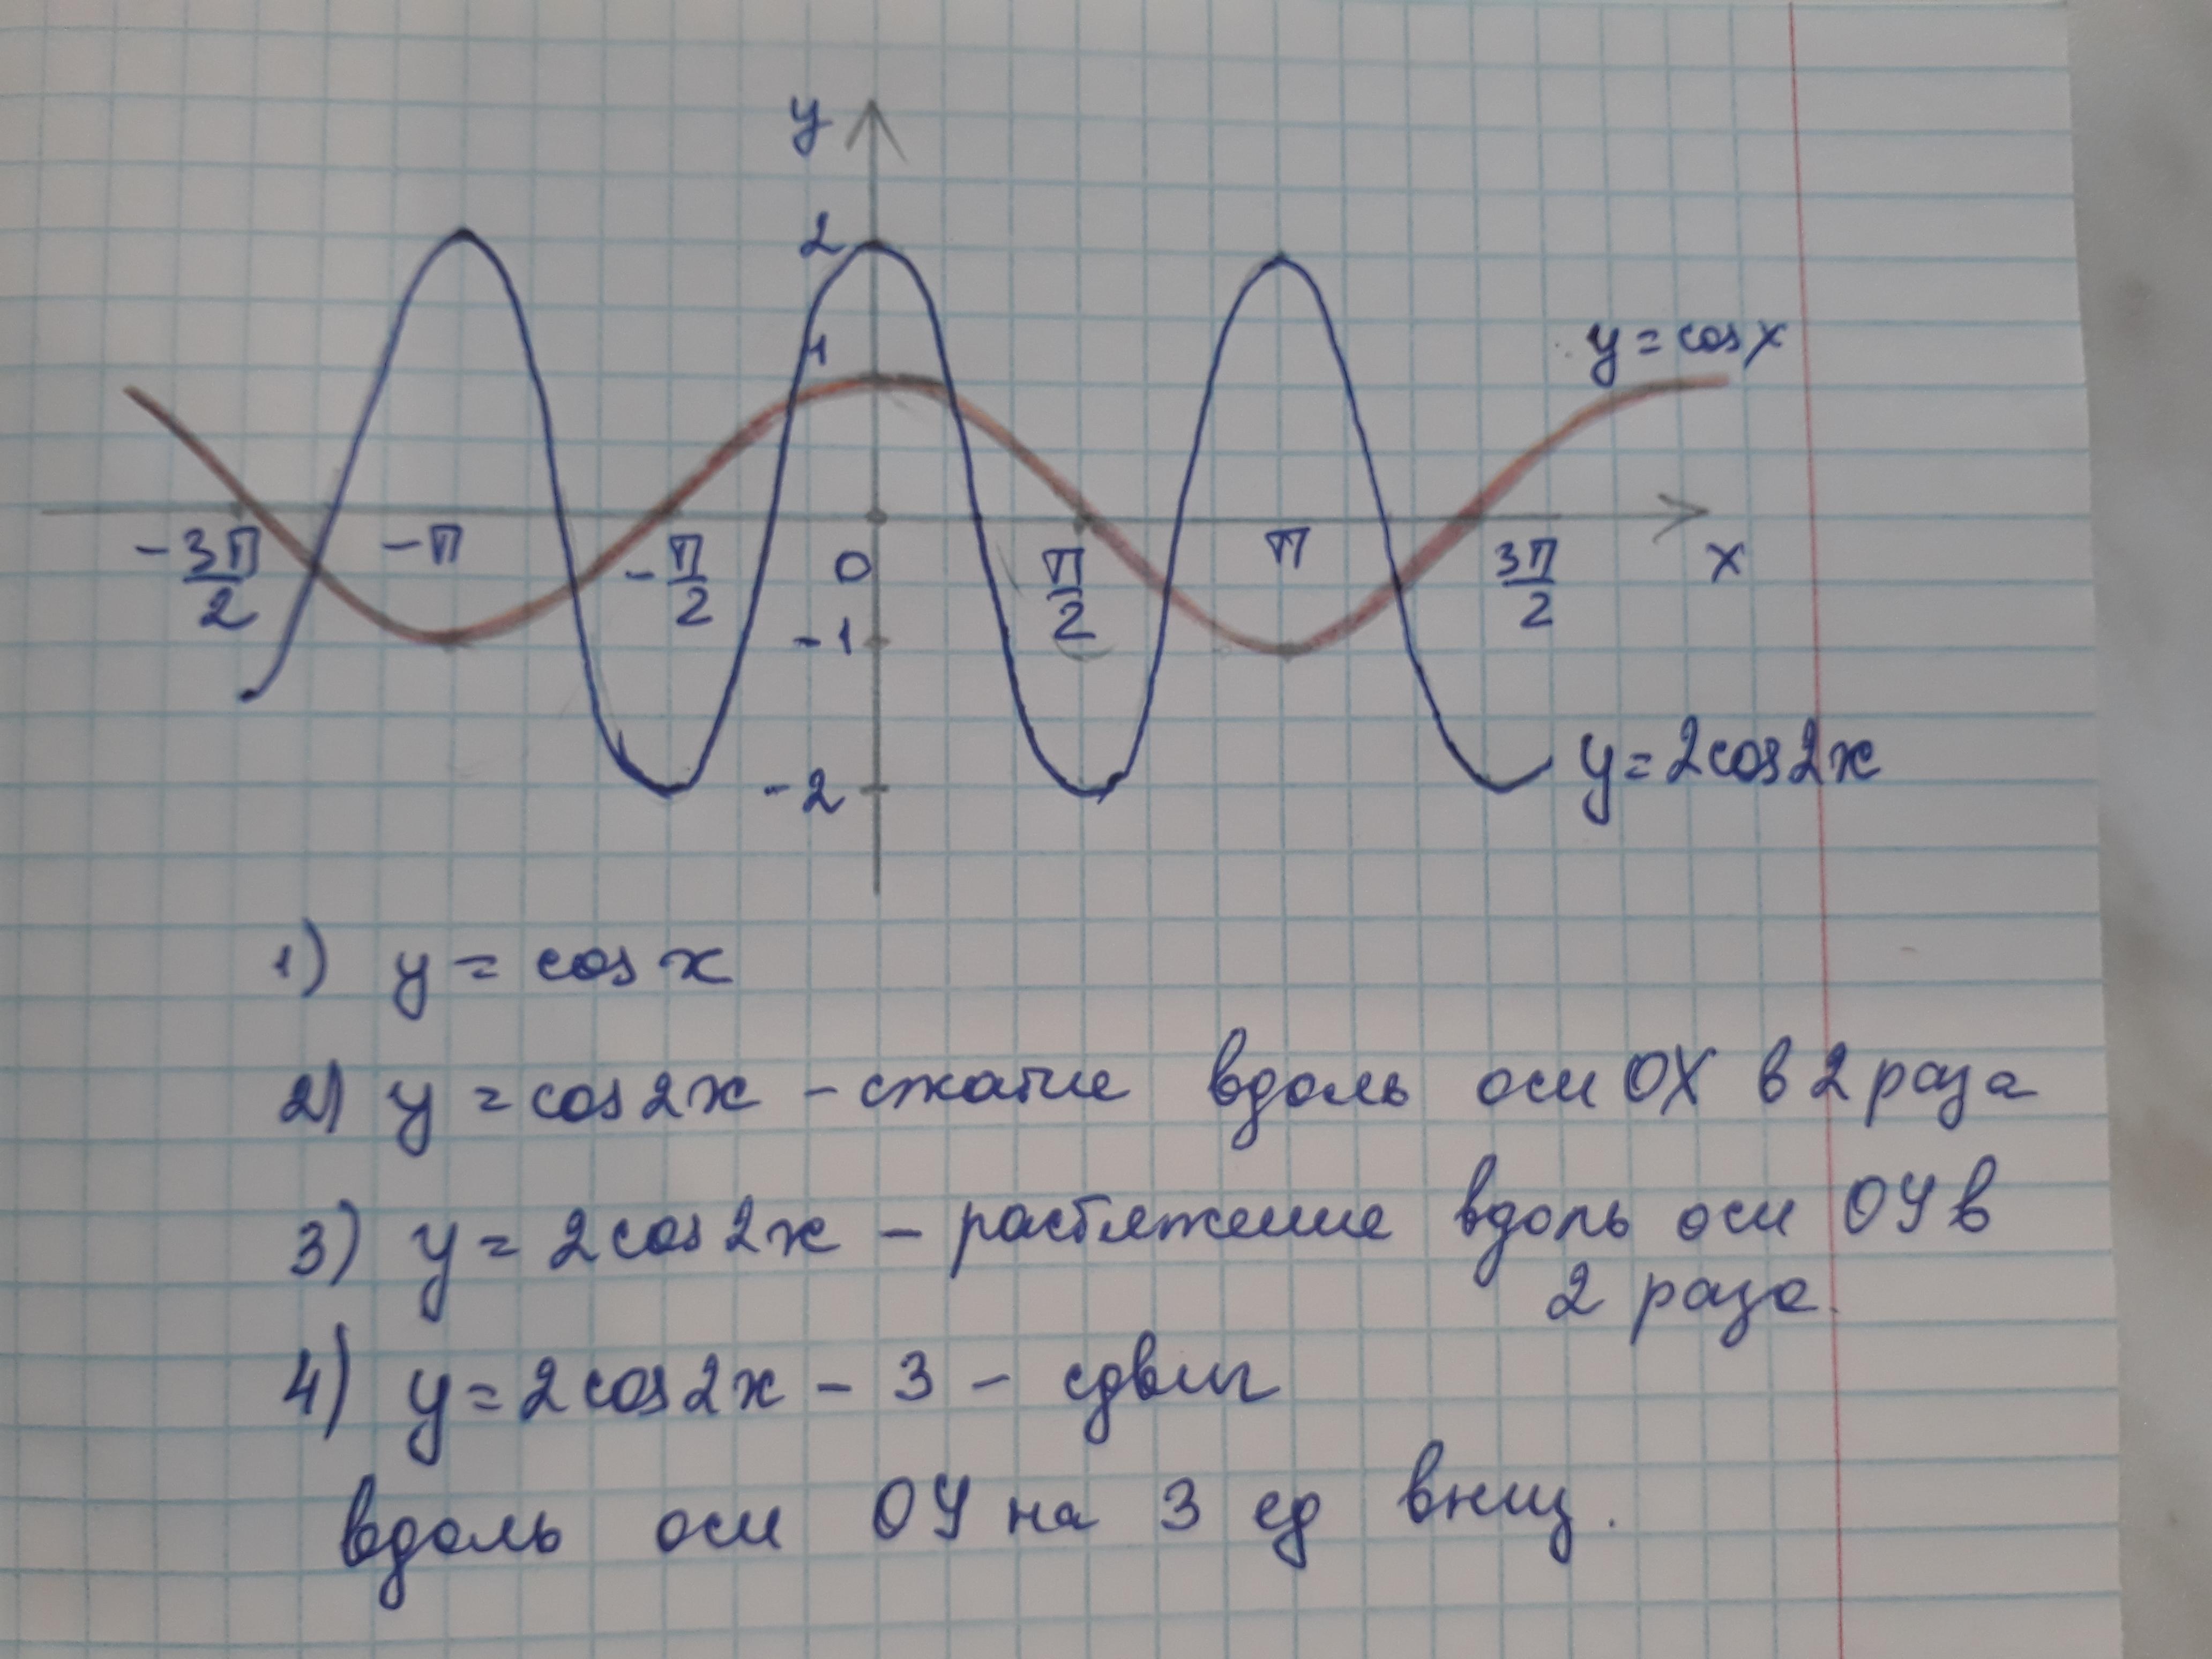 y
2
1
y = cos x
-3π/2 -π -π/2 0 π/2 π 3π/2 x
-1
y = 2cos2x
-2
1) y = cos x
2) y = cos2x - сжатие вдоль оси OX в 2 раза
3) y = 2cos2x - растяжение вдоль оси OY в
2 раза.
4) y = 2cos2x - 3 - сдвиг
вдоль оси OY на 3 ед вниз.